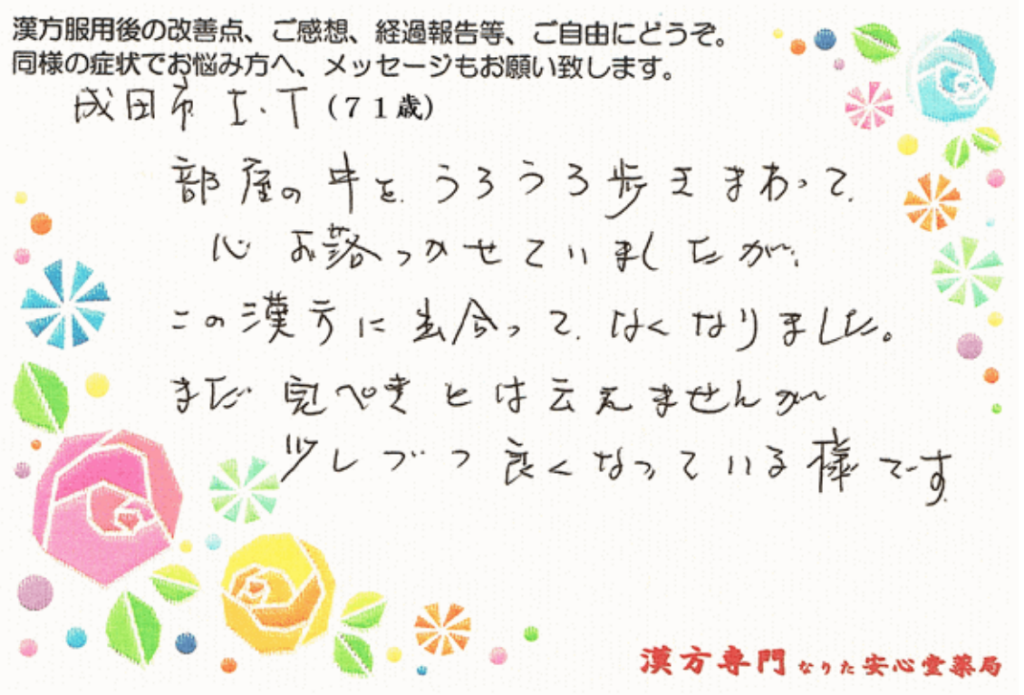 漢方服用後の改善点、ご感想、経過報告等、ご自由にどうぞ。
同様の症状でお悩み方へ、メッセージもお願い致します。
成田市 I.T (71歳)
部屋の中を、うろうろ歩きまわって、
心お落つかせていましたが、
この漢方に出合って、なくなりました。
まだ完ぺきとは云えませんが
少しづつ良くなっている様です。
漢方専門 なりた 安心堂薬局